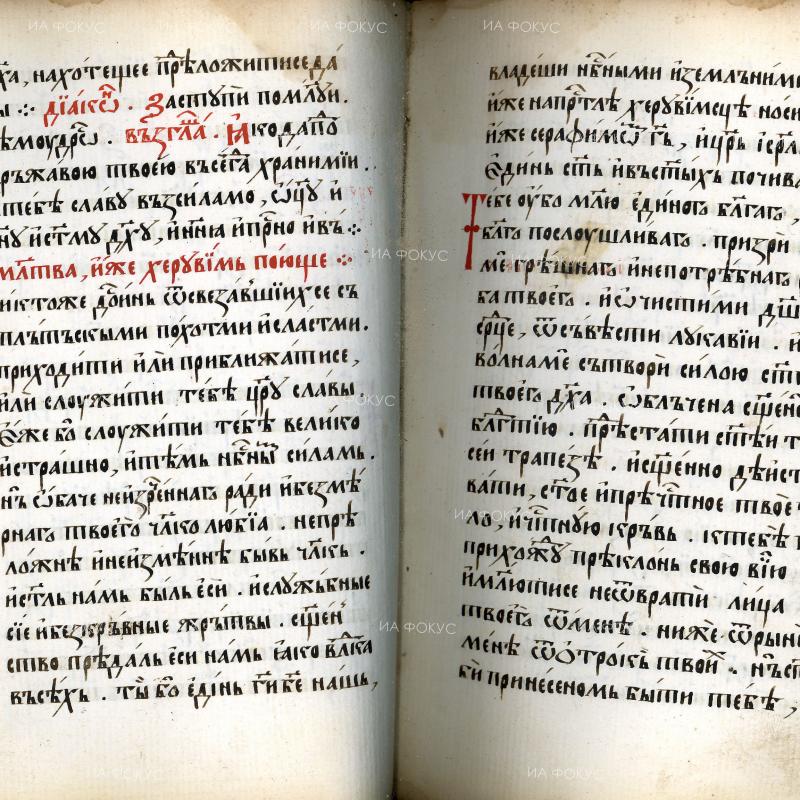 х҃а, нахо́тещее прѣ̑ложи́тисе да́
ы ⁘ дїа́кѡн̑. За́ступи поми́лꙋи.
ѣмоу́дрѡ. въ́згла̑. Ꙗ҆ко да по̑
ръ́жавою твое́ю въсегⷣа храни́мїи.
тебѣ̀ сла́вꙋ въ́зсилаѥмо, ѿц҃ꙋ и҆
н҃ꙋ и҆ ст҃мꙋ дх҃ꙋ, и҆ нн҃ꙗ и҆ при́сно и҆ въ ⁘
мл҃тва, и҆́же херꙋві́мь пою́ще ⁘
никто́же до́инь ѿ свеза́вшїихсе съ
плъ́тъскыми по́хотми и҆ сла́стми.
приходи́ти и҆лѝ приближа́тисе,
и҆́ли слоужи́ти тебѣ̀ цр҃ꙋ сла́вы
е҆́же бо̀ слоужи́ти тебѣ̀ вели́ко
и҆ стра́шно, и҆ тѣ́мь нбⷭ҇ны́м си́ламь.
нъ̀ ѡ҆ба́че неи́зреⷱ҇ннаго ра́ди и҆ безмѣ́
рнаго твоего̀ чл҃колю́бїа. непрѣ́
ло́жнѣ и҆ неи́змѣннѣ бы́вь чл҃кь.
и҆ ст҃ль на́мь бы́ль е҆сѝ. и҆ слꙋ́жьбные
сїе́ и҆ без̾крь́вные жрь́твы. сщ҃е́н
ство прѣ́даль е҆си на́мь ꙗ҆ко вл҃ка
въсѣ́хь. ты̀ бо̀ е҆ди́нь г҃и б҃е на́шь,
вла́деши нбⷭ҇ными и҆ земль́ними
и҆́же на прⷭ҇тлѣ херꙋвїмсцѣ носи
и҆́же серафи́мѡм г҃ь, и҆ цр҃ь і҆сра҃
е҆ди́нь ст҃ь и҆ въ ст҃ыхь почива
Те́бе оу҆бо мл҃ю е҆ди́ного бл҃гаго,
бл҃го послоушли́ваго. при́зри
ме грѣ́шнаго и҆ непотрѣ́бнаго р
ба твоего̀. и҆ ѡ҆чи́сти ми дш҃
ср҃це, ѿ съ́вѣсти лꙋка́вїи. и҆
во́лна ме сътво́ри си́лою ст҃
твоего̀ дх҃а. ѡ҆бльче́на сщ҃е́н
бл҃гⷣтїю. прѣ́стати ст҃ѣи т
сеи трапе́зѣ. и҆ сщ҃е́нно дѣи́ст
вати, ст҃ое и҆ прѣчⷭ҇тное твое
ло, и҆ чⷭ҇тнꙋю крь́вь. к тебѣ̀
прихож́дꙋ прѣкло́нь свою̀ вїю
и҆ мл҃ютисе не ѿврати̑ лица̀
твоего̀ ѿ ме́не. ниже ѿры́н
ме́нѣ ѿ ѡ҆тро́кь твои̑х. нъ̀ сп
би принесе́номь бы́ти тебѣ̀,
ИА ФОКУС
ИА ФОКУС
ИА ФОКУС
ИА ФОКУС
ИА ФОКУС
ИА ФОКУС
ИА ФОКУС
ИА ФОКУС